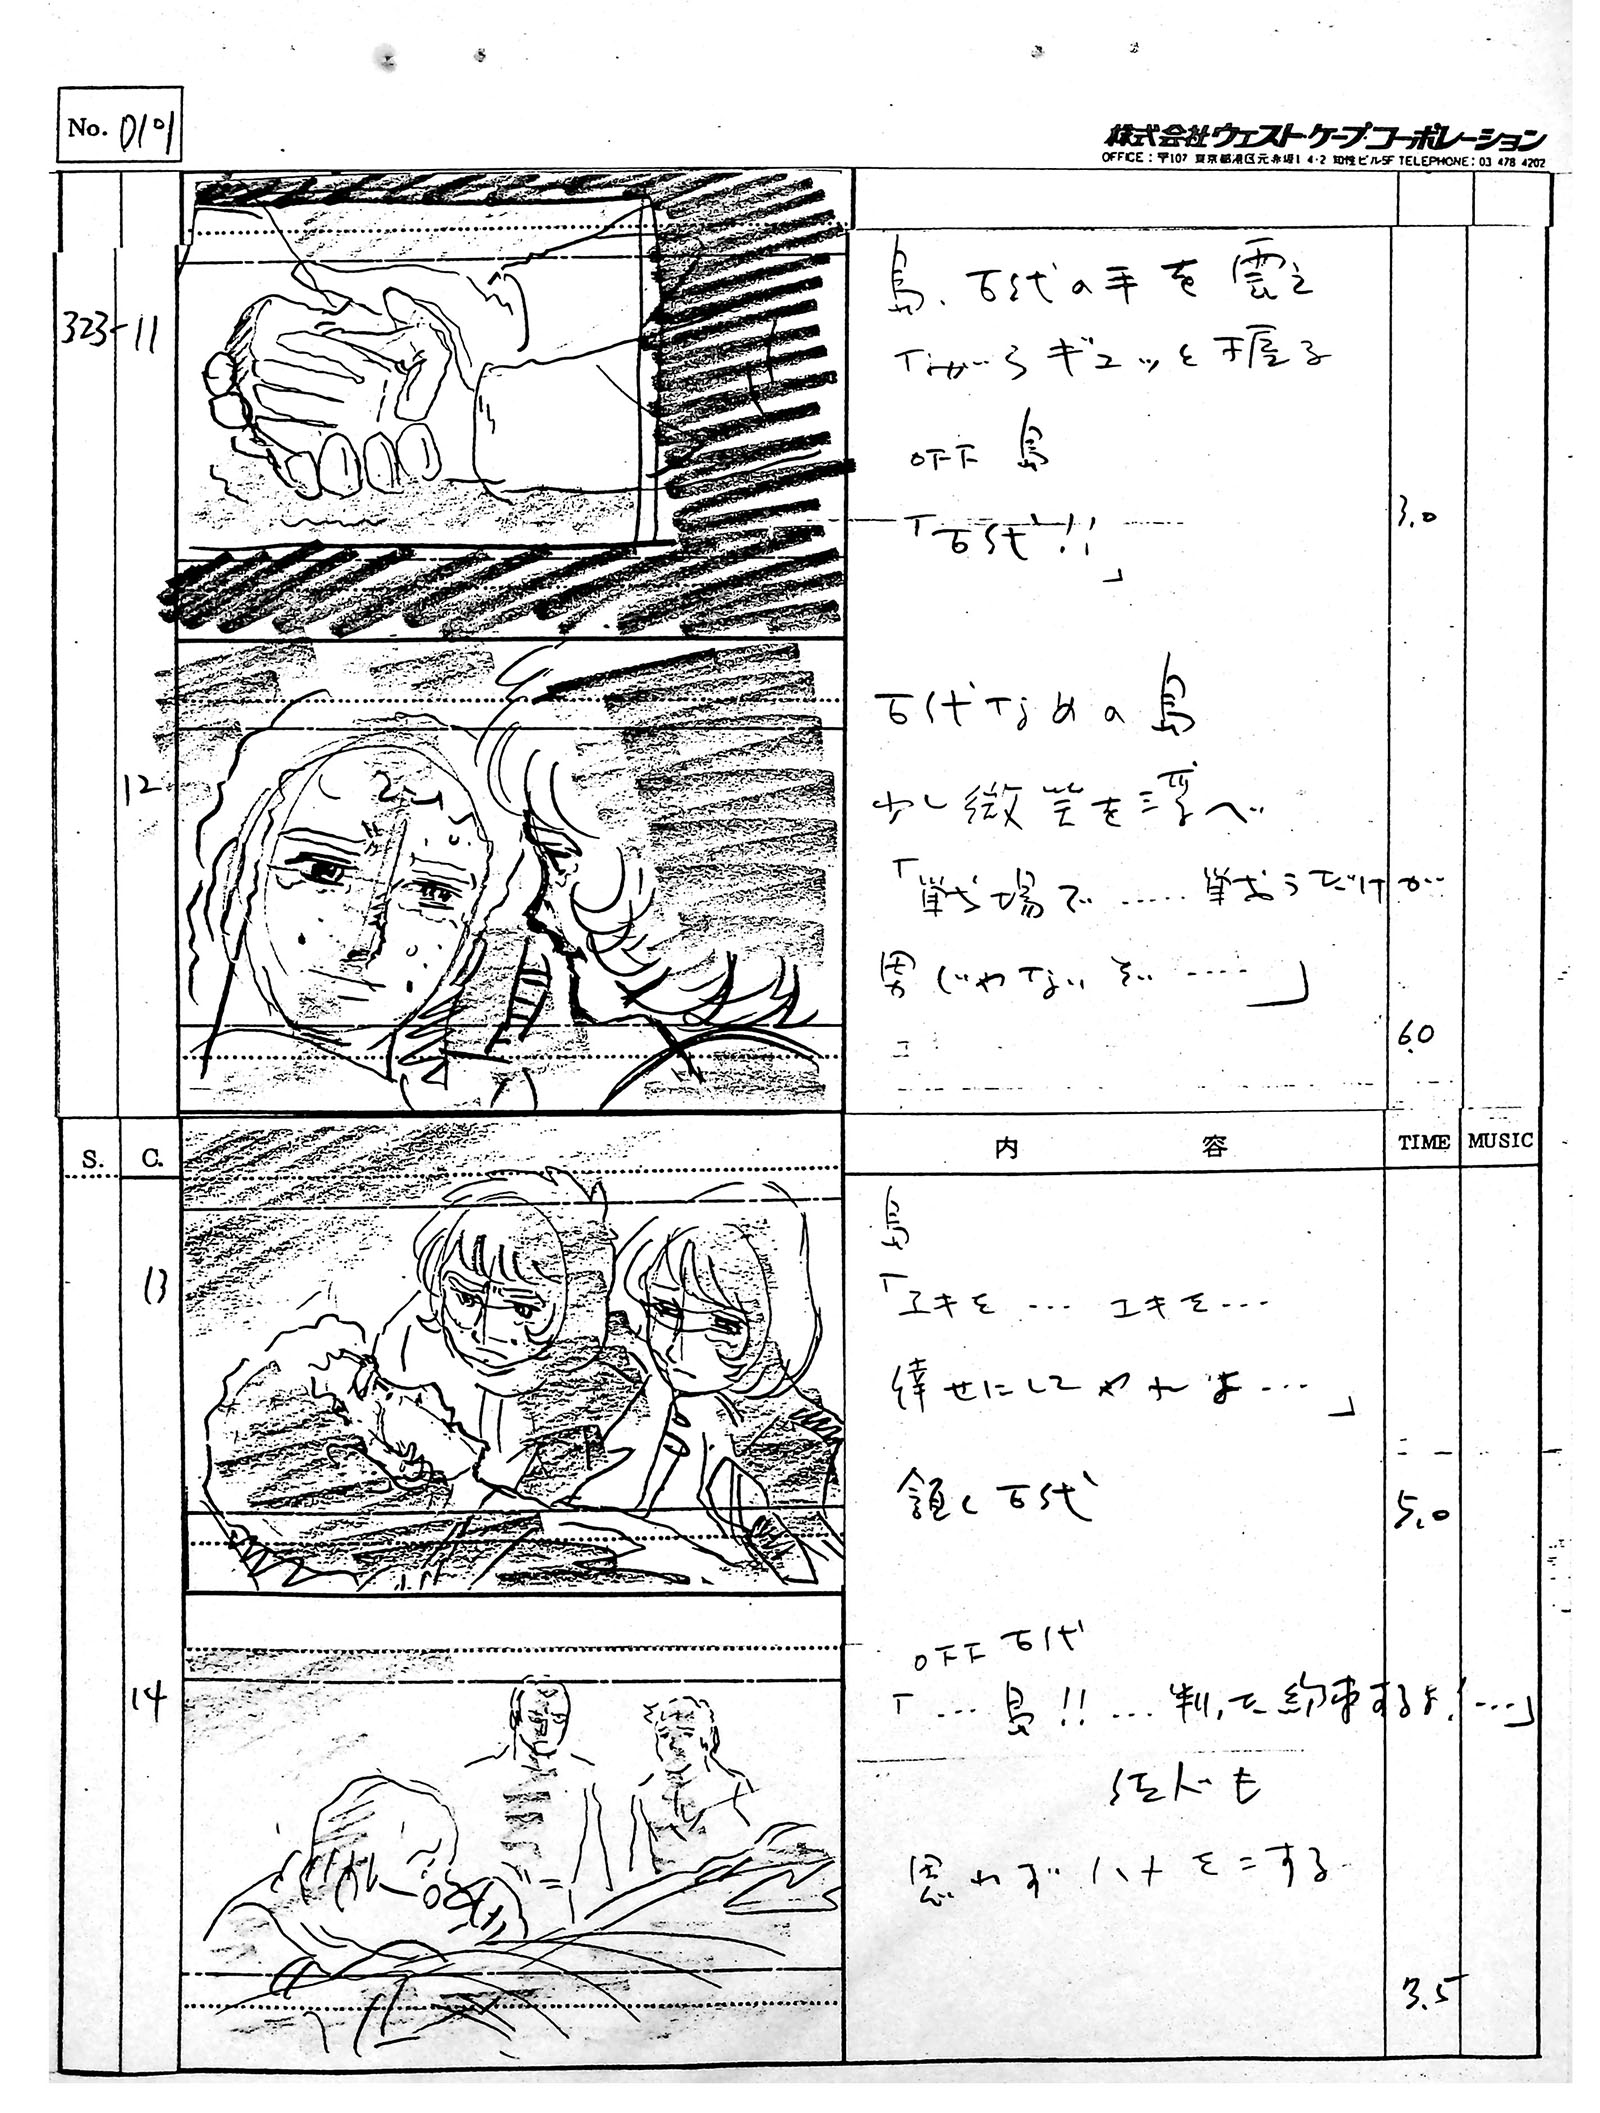 No. 0101
株式会社ウエスト・ケープ・コーポレーション
OFFICE：〒107 東京都港区元赤坂1 4-2 知性ビル5F TELEPHONE：03 478 4202
323-11
島、古代の手を震え
ながらギュッと握る
OFF 島
「古代!!」
3.0
12
古代なめの島
少し微笑を浮べ
「戦場で……戦おうだけが
男じゃないぞ……」
6.0
S. C. 内容 TIME MUSIC
13
島
「ユキを… ユキを…
倖せにしてやれよ…」
頷く古代
5.0
14
OFF 古代
「…島!!…判った約束するよ!…」
佐渡も
思わずハナをこする
3.5